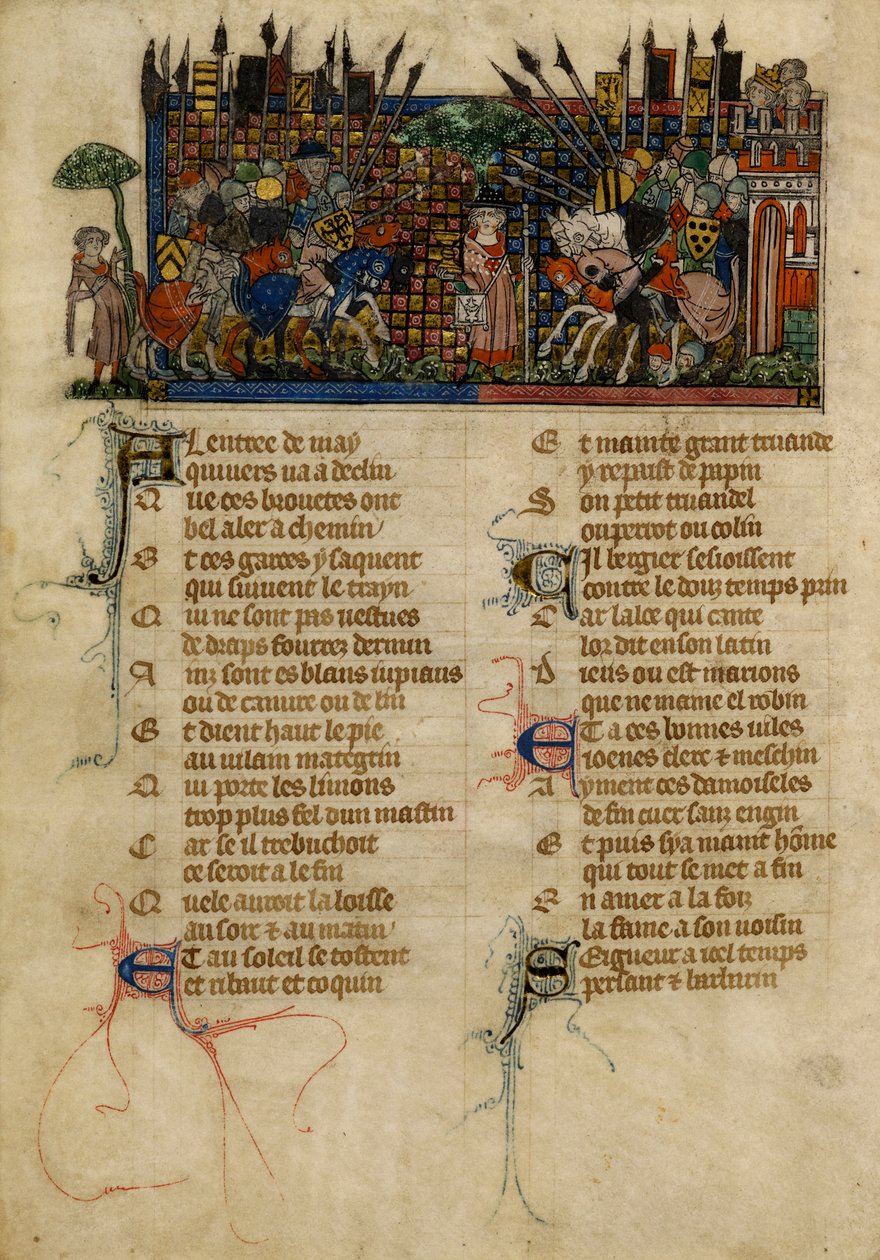 A lentree de may
quiuers ua a declin
Que ces brouetes ont
bel aler a chemin
Et ces garces y saquent
qui siuuent le trayn
Qui ne sont pas uestues
de draps fourrez dermin
Ainz sont es blans iupiaus
ou de canure ou de lin
Et dient haut le pie
au uilain mategrin
Qui porte les limons
trop plus fel dun mastin
Car se il trebuchoit
ce seroit a le fin
Quele auroit la loisse
au soir & au matin
Et au soleil se tostent
et ribaut et coquin
Et mainte grant truande
y repaist de papin
Son petit truandel
ou perrot ou colin
Cil bergier sesioissent
contre le douz temps prin
Car laloe qui cante
lor dit en son latin
Dieus ou est marions
que ne mame el robin
Et a ces bonnes uiles
ioenes clerc & meschin
Ayment ces damoiseles
de fin cuer sanz engin
Et puis sya maint hõme
qui tout se met a fin
En amer a la foiz
la fame a son uoisin
Seigneur a icel temps
perlant & barburin